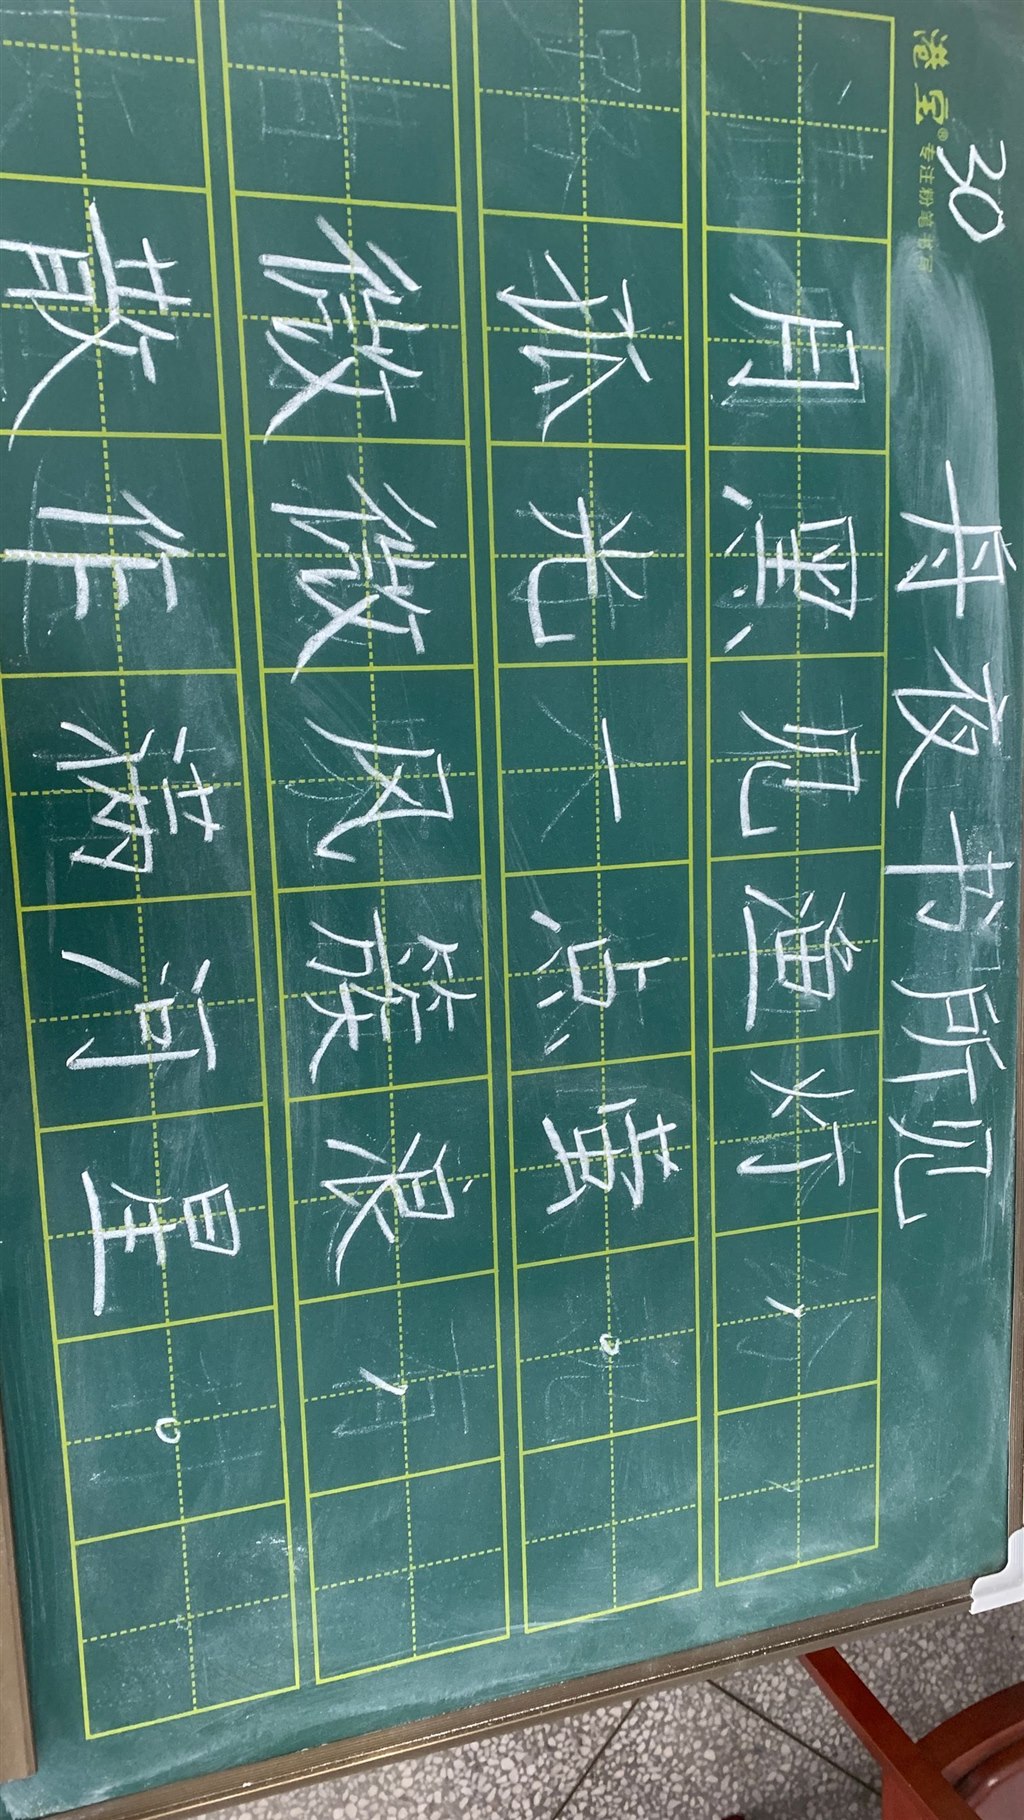 港宝® 专注粉笔书写
30
舟夜书所见
月黑见渔灯，
孤光一点萤。
微微风簇浪，
散作满河星。